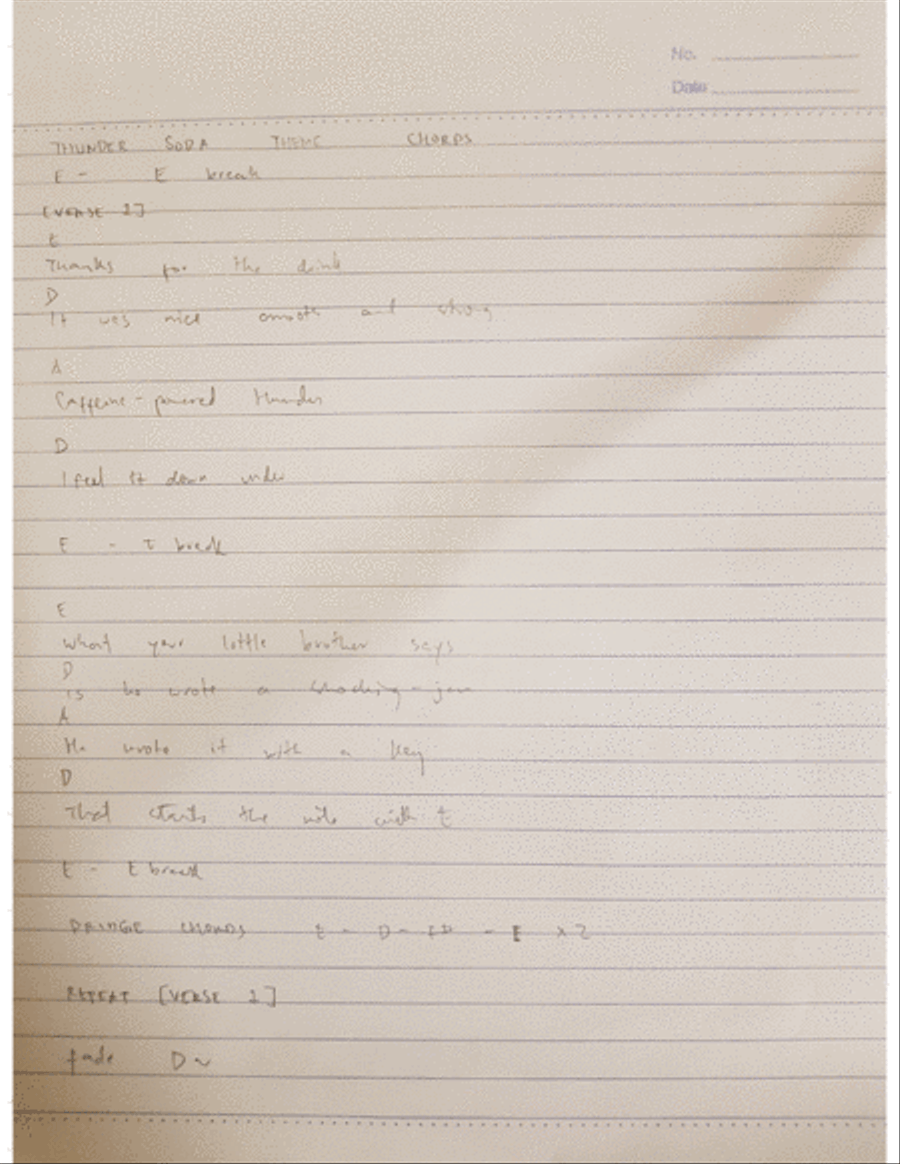 No.
Date
THUNDER SODA THEME CHORDS
E - E break
[VERSE 1]
E
Thanks for the drink
D
It was nice smooth and strong
A
Caffeine-powered thunder
D
I feel it down under
E - E break
E
what your little brother says
D
is he wrote a
A
He wrote it with a key
D
That starts the note with E
E - E break
BRIDGE CHORDS E - D - - E x2
REPEAT [VERSE 1]
fade D